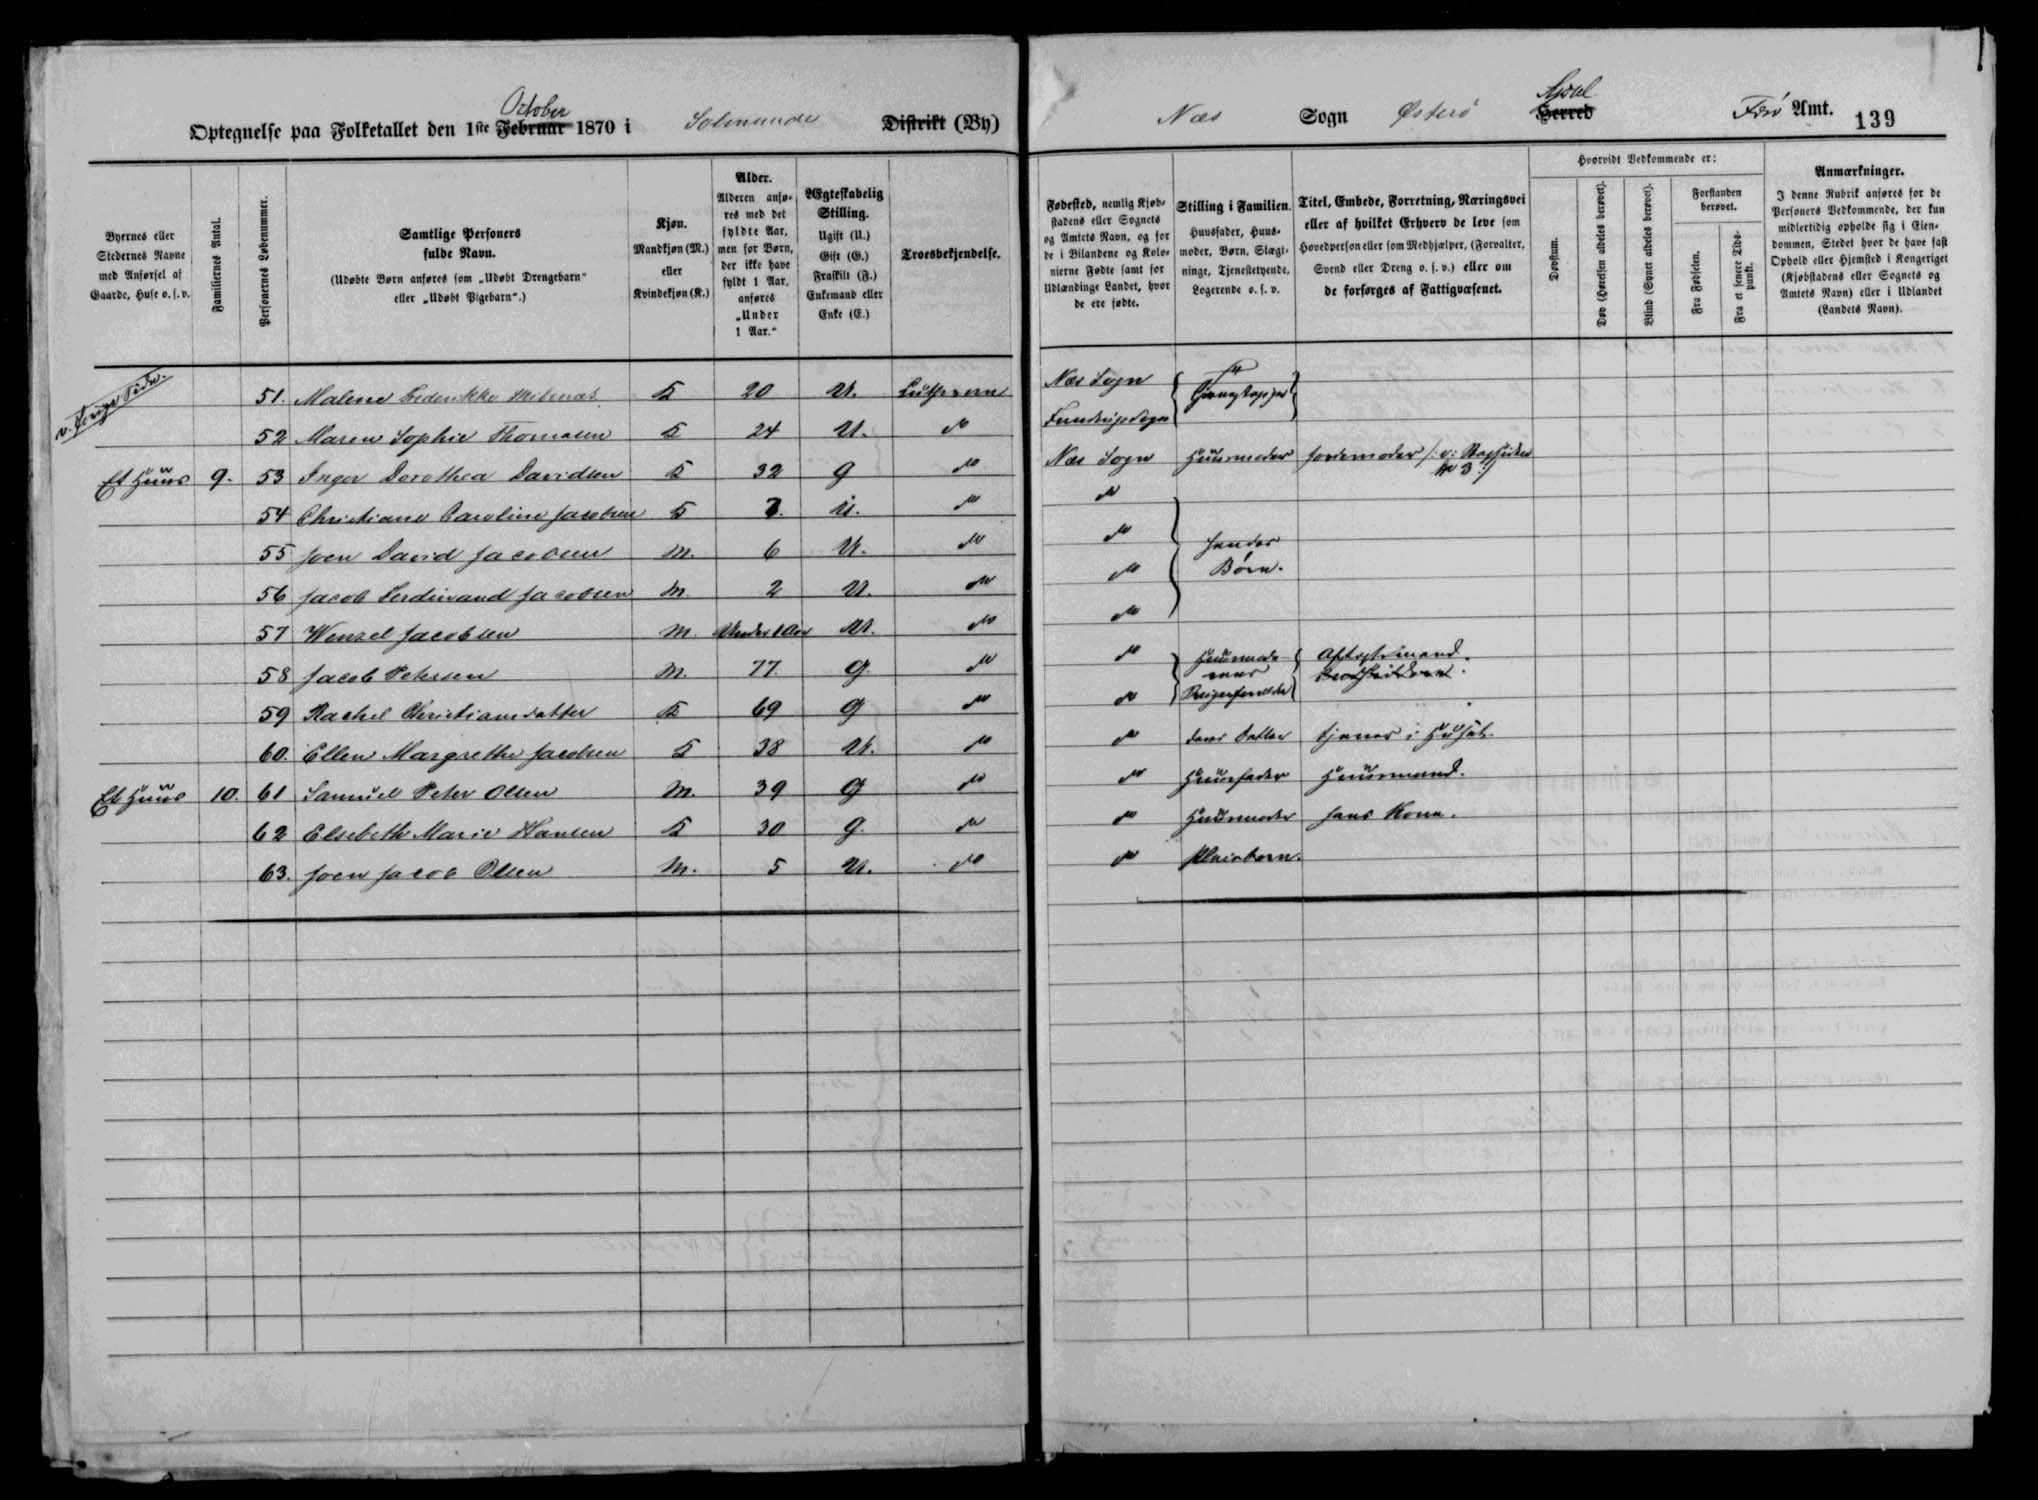 October
Optegnelse paa Folketallet den 1ste Februar 1870 i Solmunde Distrikt (By)
Byernes eller
Stedernes Navne
med Anførsel af
Gaarde, Huse o. s. v.
Familiernes Antal.
Personernes Løbenummer.
Samtlige Personers
fulde Navn.
(Udøbte Børn anføres som „Udøbt Drengebarn"
eller „Udøbt Pigebarn".)
Kjøn.
Mandkjøn (M.)
eller
Kvindekjøn (K.)
Alder.
Alderen anfø-
res med det
fyldte Aar,
men for Børn,
der ikke have
fyldt 1 Aar,
anføres
„Under
1 Aar."
Ægteskabelig
Stilling.
Ugift (U.)
Gift (G.)
Fraskilt (F.)
Enkemand eller
Enke (E.)
Troesbekjendelse.
v. Forige Side.
51. Malene Frederikke K 20 U. Lutherann
52 Maren Sophie Thomasen K 24 U. do
Et Huus 9. 53 Inger Dorothea Davidsen K 32 g do
54 Christiane Caroline Jacobsen K 7. U. do
55 Joen David Jacobsen M. 6 U. do
56 Jacob Ferdinand Jacobsen M. 2 U. do
57 Wenzel Jacobsen M. Under 1 Aar U. do
58 Jacob Petersen M. 77. g. do
59 Rachel Christiansdatter K 69 g do
60. Ellen Margrethe Jacobsen K 38 U. do
Et Huus 10. 61 Samuel Peter Olsen M. 39 g do
62 Elsebeth Marie Hansen K 30 g. do
63. Joen Jacob Olsen M. 5 U. do
Næs Sogn Østerø Syssel Herred Færø Amt. 139
Fødested, nemlig Kjøb-
stadens eller Sognets
og Amtets Navn, og for
de i Bilandene og Kolo-
nierne Fødte samt for
Udlændinge Landet, hvor
de ere fødte.
Stilling i Familien.
Huusfader, Huus-
moder, Børn, Slægt-
ninge, Tjenestetyende,
Logerende o. s. v.
Titel, Embede, Forretning, Næringsvei
eller af hvilket Erhverv de leve som
Hovedperson eller som Medhjælper, (Forvalter,
Svend eller Dreng o. s. v.) eller om
de forsørges af Fattigvæsenet.
Hvorvidt Vedkommende er:
Døvstum.
Døv (Hørelsen aldeles berøvet).
Blind (Synet aldeles berøvet).
Forstanden
berøvet.
Fra Fødselen.
Fra et senere Tids-
punkt.
Anmærkninger.
I denne Rubrik anføres for de
Personers Vedkommende, der kun
midlertidig opholde sig i Eien-
dommen, Stedet hvor de have fast
Ophold eller Hjemsted i Kongeriget
(Kjøbstadens eller Sognets og
Amtets Navn) eller i Udlandet
(Landets Navn).
Næs Sogn
Sogn
Næs Sogn Huusmoder Jordemoder
No 3
do
do hendes
do Børn.
do
do Aftægtsmand.
do
do deres Datter tjener i Huset.
do Huusfader Huusmand.
do Huusmoder hans Kone.
do Pleiebarn.